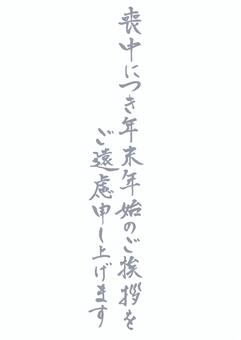 喪中につき年末年始のご挨拶を
ご遠慮申し上げます